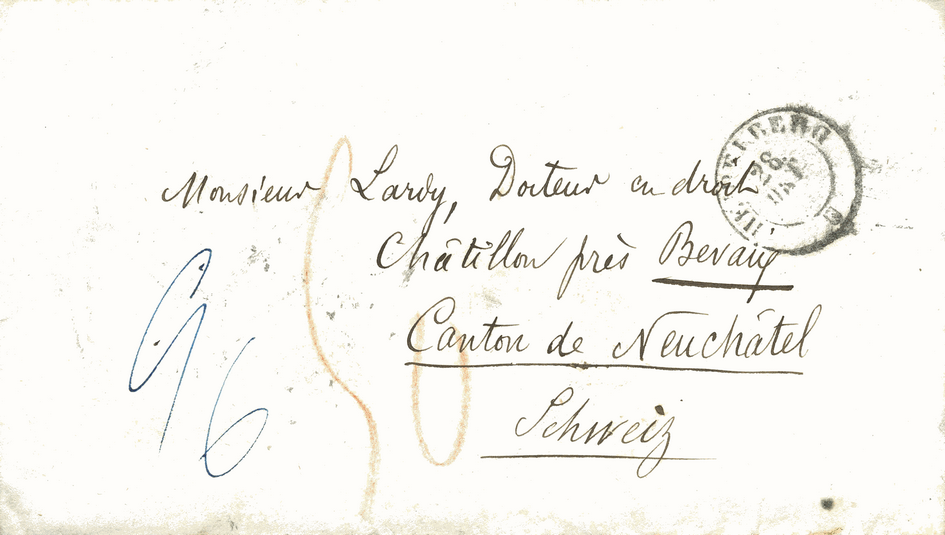 Monsieur Lardy, Docteur en droit
Châtillon près Bevaix
Canton de Neuchâtel
Schweiz
HEIDELBERG
28
96